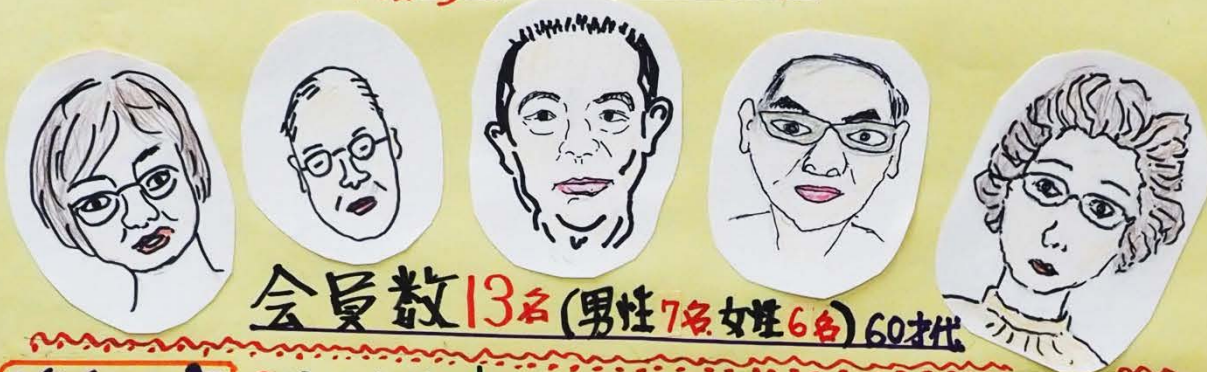 会員数13名(男性7名女性6名)60才代